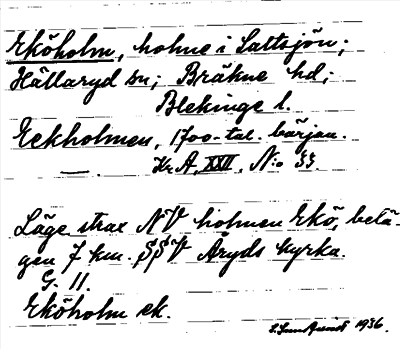 Eköholm, holme i Saltsjön;
Hällaryd sn; Bräkne hd;
Blekinge l.
Eekholmen, 1700-tal. början.
— . Kr. A, XXII. N:o 33.
Läge strax NV holmen Ekö, belä-
gen 7 km. SSV Åryds kyrka.
G. 11.
Eköholm ek.
1936.